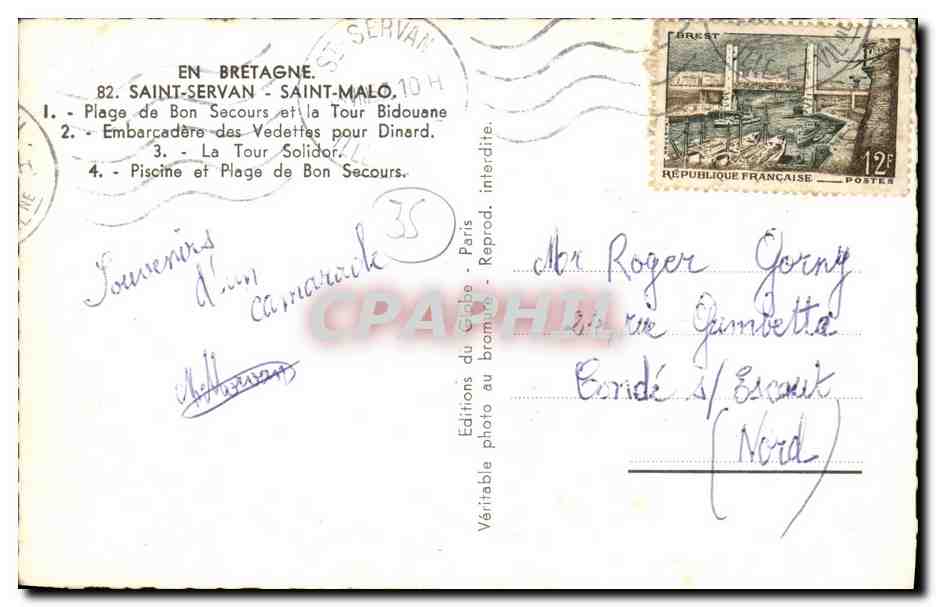 EN BRETAGNE.
82. SAINT-SERVAN - SAINT-MALO.
1. - Plage de Bon Secours et la Tour Bidouane
2. - Embarcadère des Vedettes pour Dinard.
3. - La Tour Solidor.
4. - Piscine et Plage de Bon Secours.
ST-SERVAN
10 H
BREST
12F
RÉPUBLIQUE FRANÇAISE
POSTES
35
Souvenirs
d'un
camarade
Editions du Globe - Paris
Véritable photo au bromure - Reprod. interdite.
CPAPHIL
Mr Roger Gorny
rue Gambetta
Condé s/Escaut
(Nord)